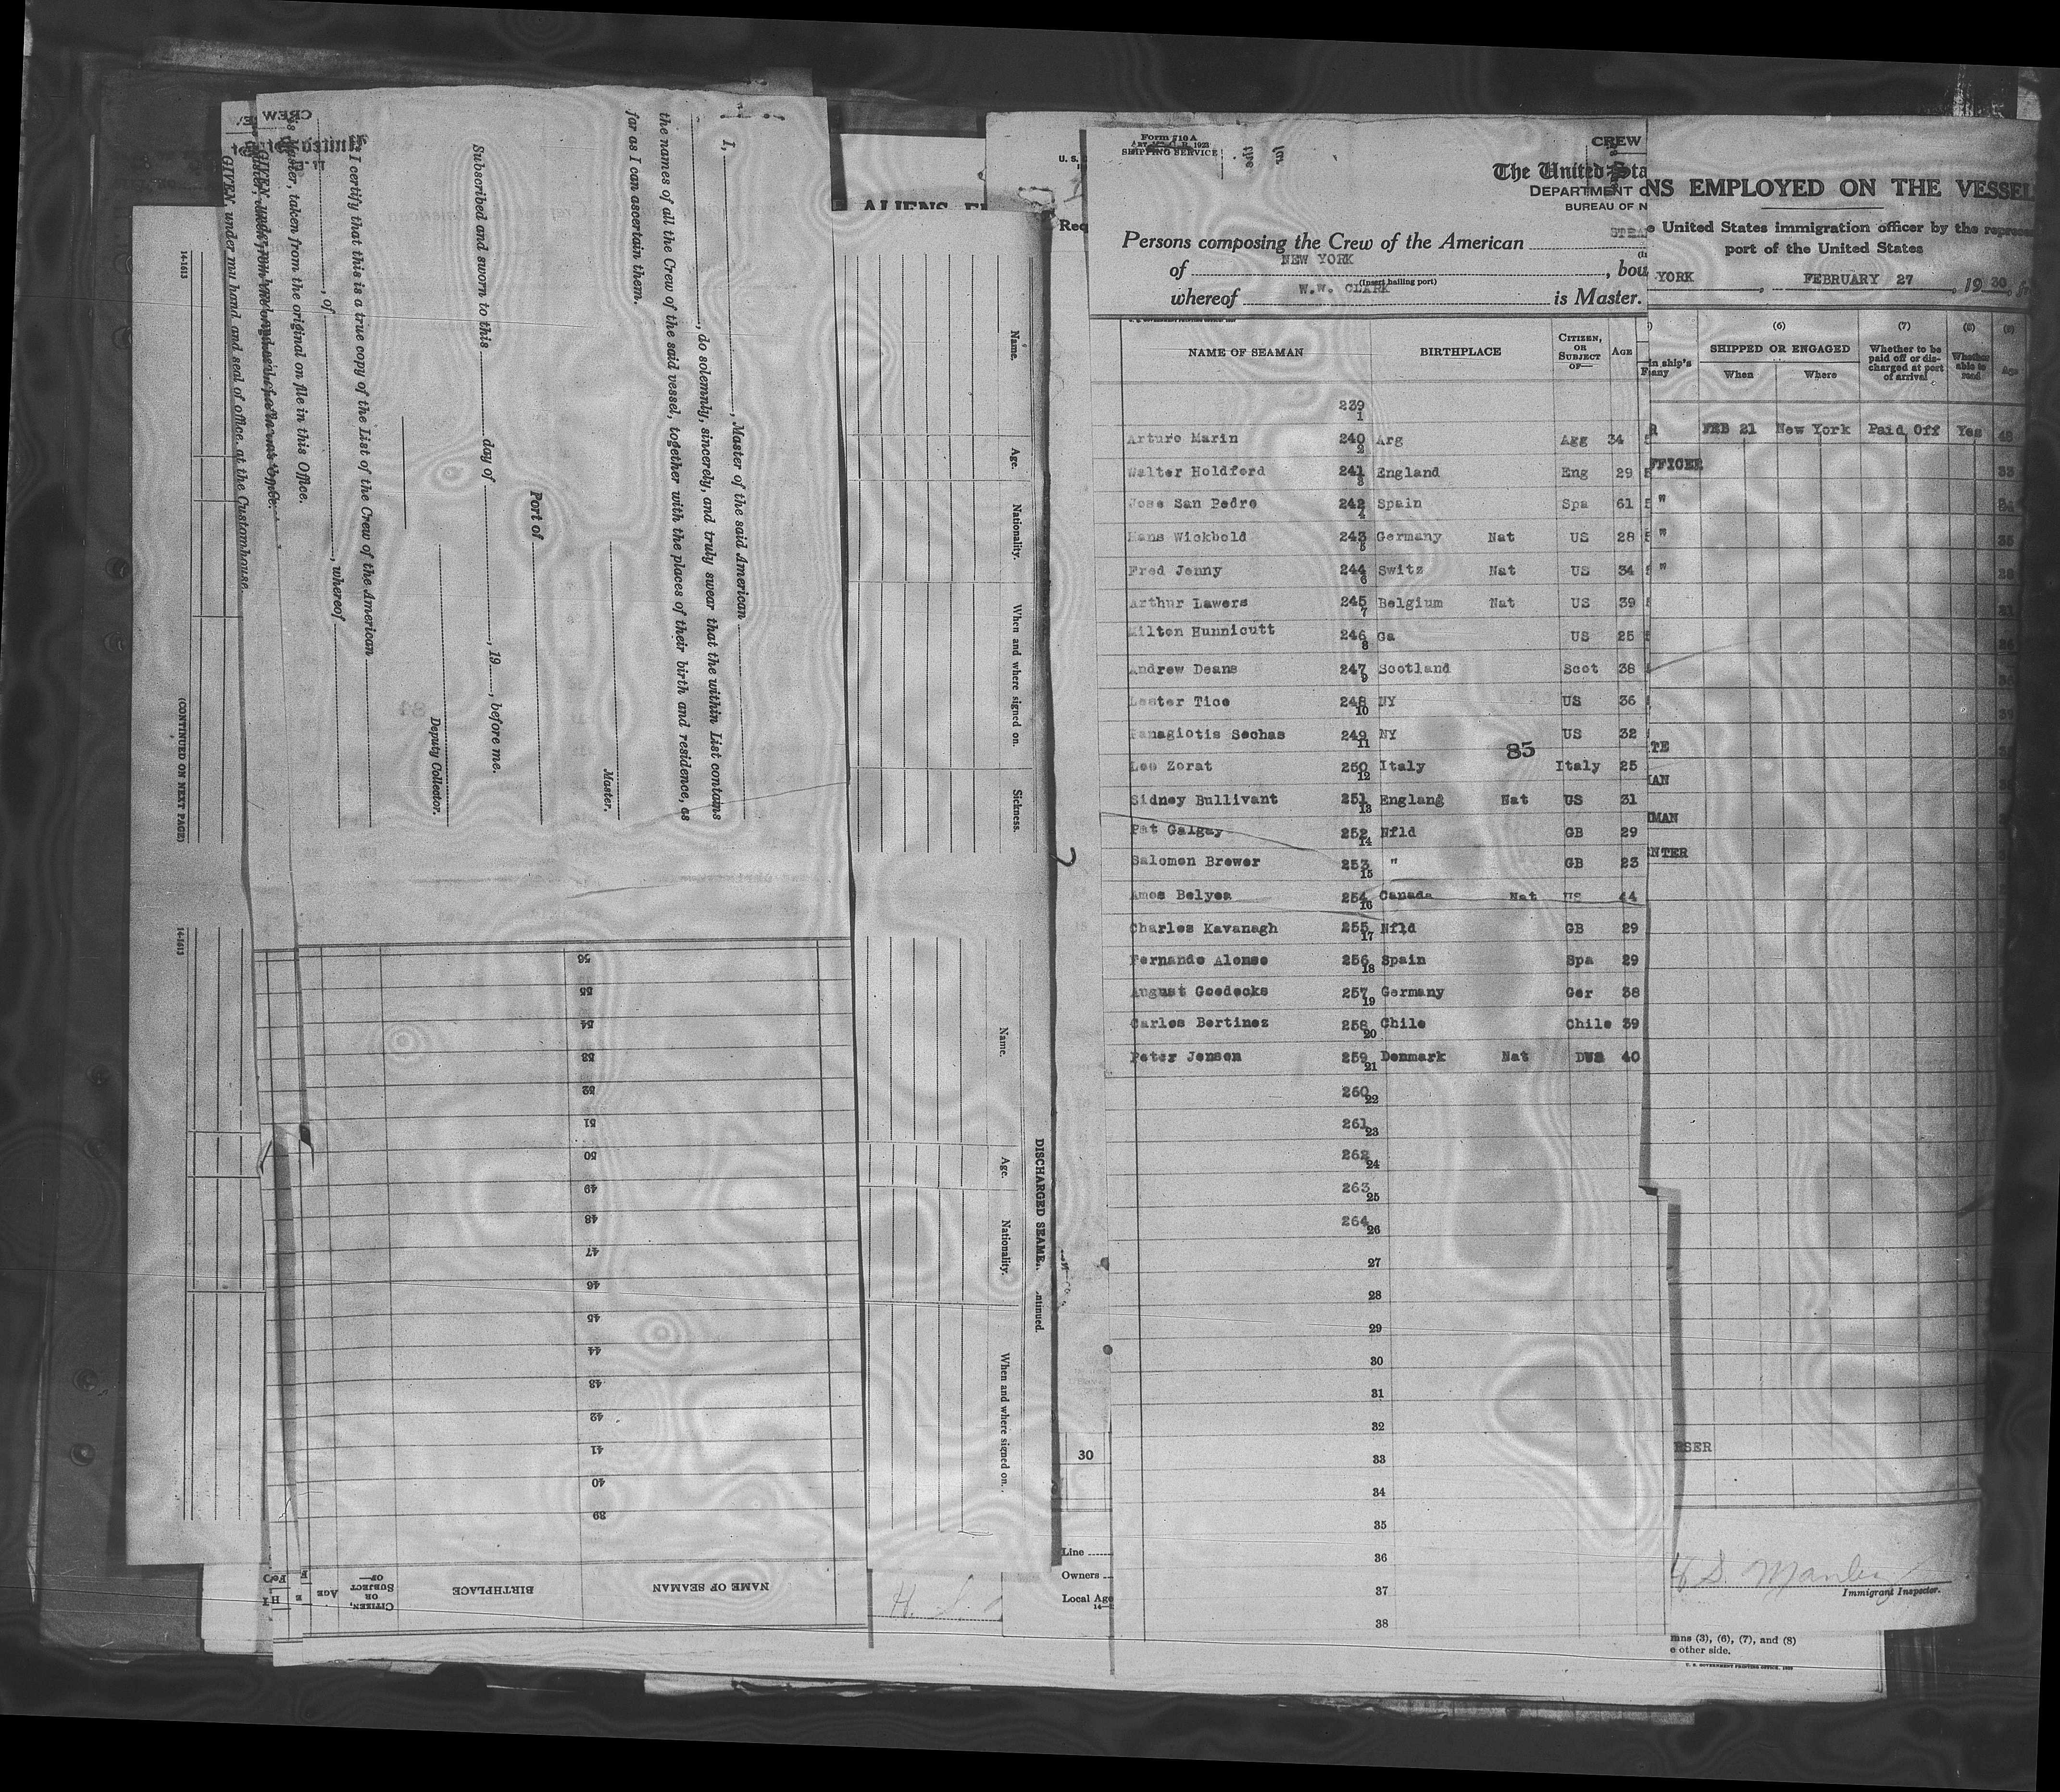 14-1613
(CONTINUED ON NEXT PAGE)
14-1613
CREW
I certify that this is a true copy of the List of the Crew of the American
, of , whereof
is Master, taken from the original on file in this Office.
GIVEN under my hand and seal of office, at the Customhouse
I, , Master of the said American
, do solemnly, sincerely, and truly swear that the within List contains
the names of all the Crew of the said vessel, together with the places of their birth and residence, as
far as I can ascertain them.
Master.
Port of
Subscribed and sworn to this day of , 19 , before me.
Deputy Collector.
NAME OF SEAMAN
BIRTHPLACE
CITIZEN, OR SUBJECT OF—
AGE
39
40
41
42
43
44
45
46
47
48
49
50
51
52
53
54
55
56
Name.
Age.
Nationality.
When and where signed on.
Sickness.
DISCHARGED SEAME
ntinued.
Name.
Age.
Nationality.
When and where signed on.
U. S.
ALIENS
Req
30
Line
Owners
Local Age
14—
Form 710 A
SHIPPING SERVICE
CREW
The United Sta
DEPARTMENT O
BUREAU OF N
Persons composing the Crew of the American STEA
of NEW YORK , bou
(Insert hailing port)
whereof W.W. CLARK is Master.
NAME OF SEAMAN BIRTHPLACE CITIZEN, OR SUBJECT OF— AGE
239 1
Arturo Marin 240 2 Arg Agg 34
Walter Holdford 241 3 England Eng 29
Jose San Pedro 242 4 Spain Spa 61
Hans Wickbold 243 5 Germany Nat US 28
Fred Jenny 244 6 Switz Nat US 34
Arthur Lawers 245 7 Belgium Nat US 39
Milton Hunnicutt 246 8 Ga US 25
Andrew Deans 247 9 Scotland Scot 38
Lester Tice 248 10 NY US 36
Panagiotis Sechas 249 11 NY US 32
85
Leo Zorat 250 12 Italy Italy 25
Sidney Bullivant 251 13 Englang Nat US 31
Pat Galgay 252 14 Nfld GB 29
Salomon Brewer 253 15 " GB 23
Amos Belyea 254 16 Canada Nat US 44
Charles Kavanagh 255 17 Nfld GB 29
Fernando Alonso 256 18 Spain Spa 29
August Goedecks 257 19 Germany Ger 38
Carlos Bertinez 258 20 Chile Chile 39
Peter Jensen 259 21 Denmark Nat DUS 40
260 22
261 23
262 24
263 25
264 26
27
28
29
30
31
32
33
34
35
36
37
38
NS EMPLOYED ON THE VESSEL
United States immigration officer by the
port of the United States
YORK , FEBRUARY 27 , 19 30
(6) (7) (8)
in ship's
SHIPPED OR ENGAGED
When Where
Whether to be paid off or discharged at port of arrival
Whether able to read
Age
R FEB 21 New York Paid Off Yes 48
FFICER 33
"
" 35
"
TE
MAN
NTER
RSER
H S. Manley
Immigrant Inspector.
mns (3), (6), (7), and (8)
e other side.
U. S. GOVERNMENT PRINTING OFFICE